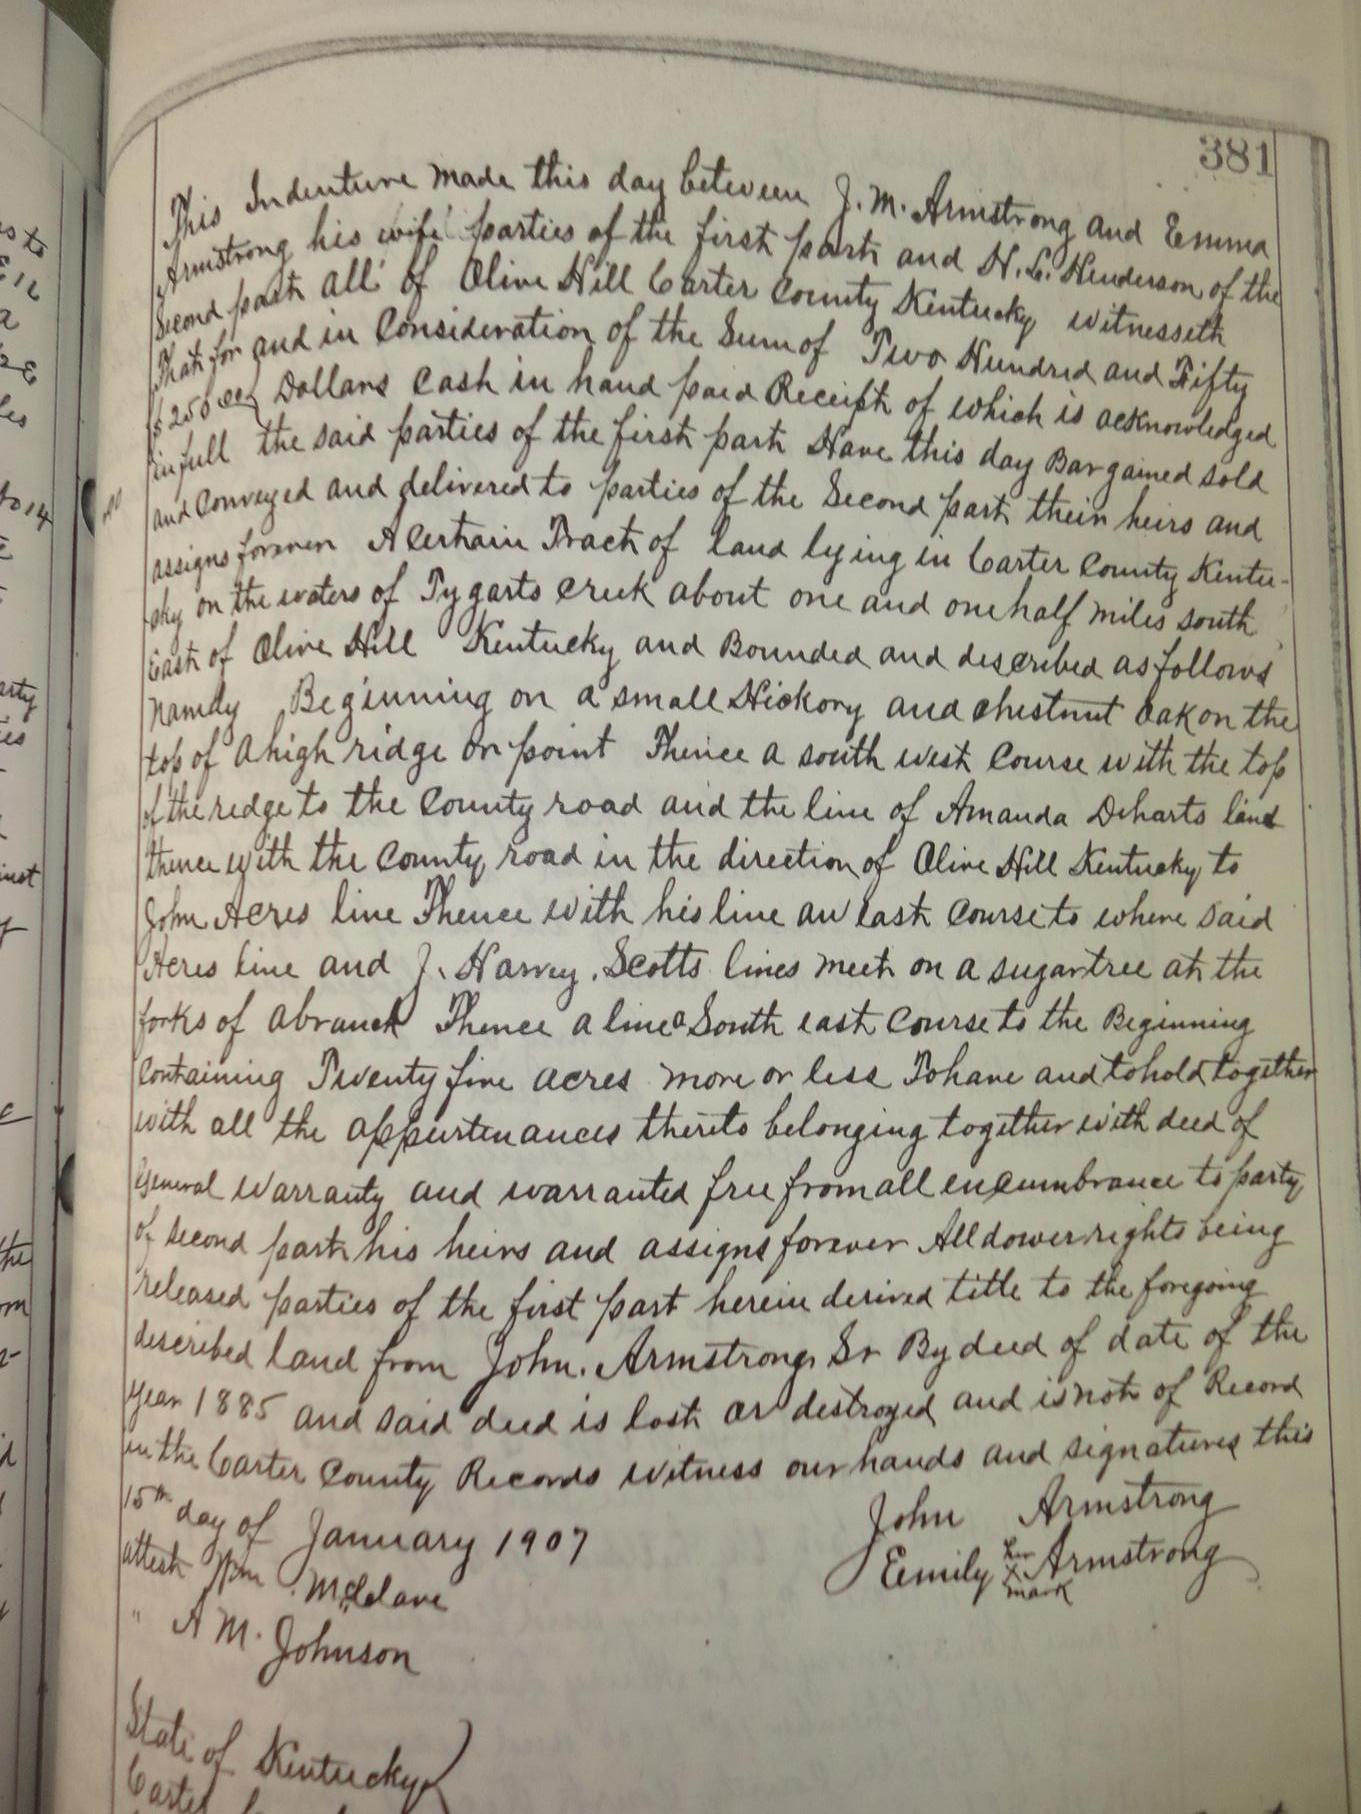 381
This Indenture made this day between J. M. Armstrong and Emma
Armstrong his wife parties of the first part and H. L. Henderson of the
Second part all of Olive Hill Carter County Kentucky witnesseth
That for and in Consideration of the Sum of Two Hundred and Fifty
$250.00 Dollars Cash in hand paid Receipt of which is acknowledged
in full the said parties of the first part Have this day Bargained sold
and Conveyed and delivered to parties of the Second part their heirs and
assigns forever A Certain Tract of land lying in Carter County Kentu-
cky on the waters of Tygarts Creek about one and one half miles south
East of Olive Hill Kentucky and Bounded and described as follows
Namely Beginning on a small Hickory and chestnut oak on the
top of a high ridge or point Thence a south west Course with the top
of the redge to the County road and the line of Amanda Deharts land
thence with the County road in the direction of Olive Hill Kentucky to
John Acres line Thence with his line an East Course to where said
Acres line and J. Harvey Scotts lines meet on a sugartree at the
forks of a branch Thence a line a South east Course to the Beginning
Containing Twenty five acres more or less To have and to hold together
with all the appurtenances thereto belonging together with deed of
General Warranty and warranted free from all encumbrance to party
of second part his heirs and assigns forever All dower rights being
released parties of the first part herein derived title to the foregoing
described land from John. Armstrong Sr By deed of date of the
year 1885 and said deed is lost or destroyed and is not of Record
in the Carter County Records witness our hands and signatures this
15th day of January 1907
John Armstrong
attest Wm McClave
Emily her X mark Armstrong
" A M. Johnson
State of Kentucky
Carter